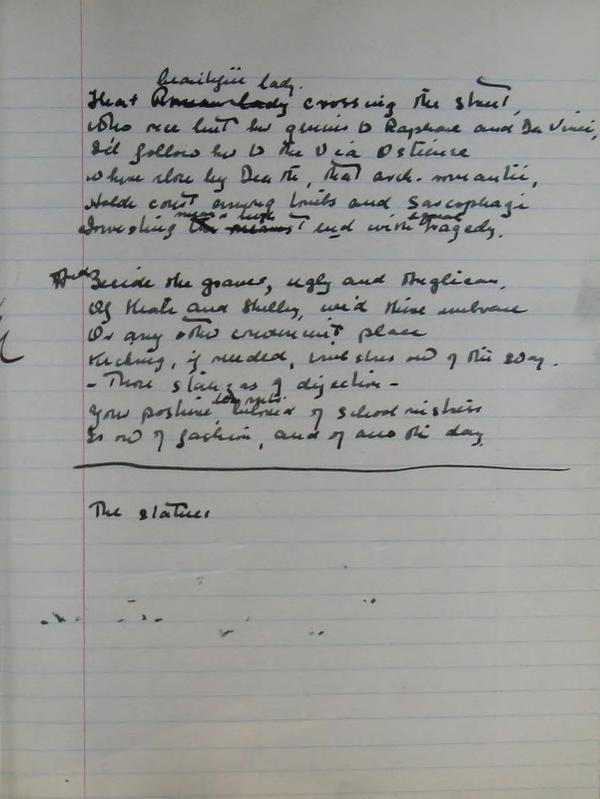 beautiful lady.
That Roman lady crossing the street,
Who once lent her genius to Raphael and Da Vinci,
I'd follow her to the Via Ostiense
Where close by Death, that arch-romantic,
Holds court among tombs and Sarcophagi
Investing end with tragedy.
And Beside the graves, ugly and Anglican,
Of Keats and Shelley, we'd there embrace
Or any other convenient place
Kicking, if needed, out of the way.
- Those stanzas of dejection -
Your posture, beloved of school mistress
Is out of fashion, and of another day.
The statues